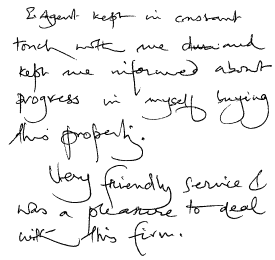 Agent kept in constant
touch with me and
kept me informed about
progress in myself buying
this property.
Very friendly service &
was a pleasure to deal
with this firm.